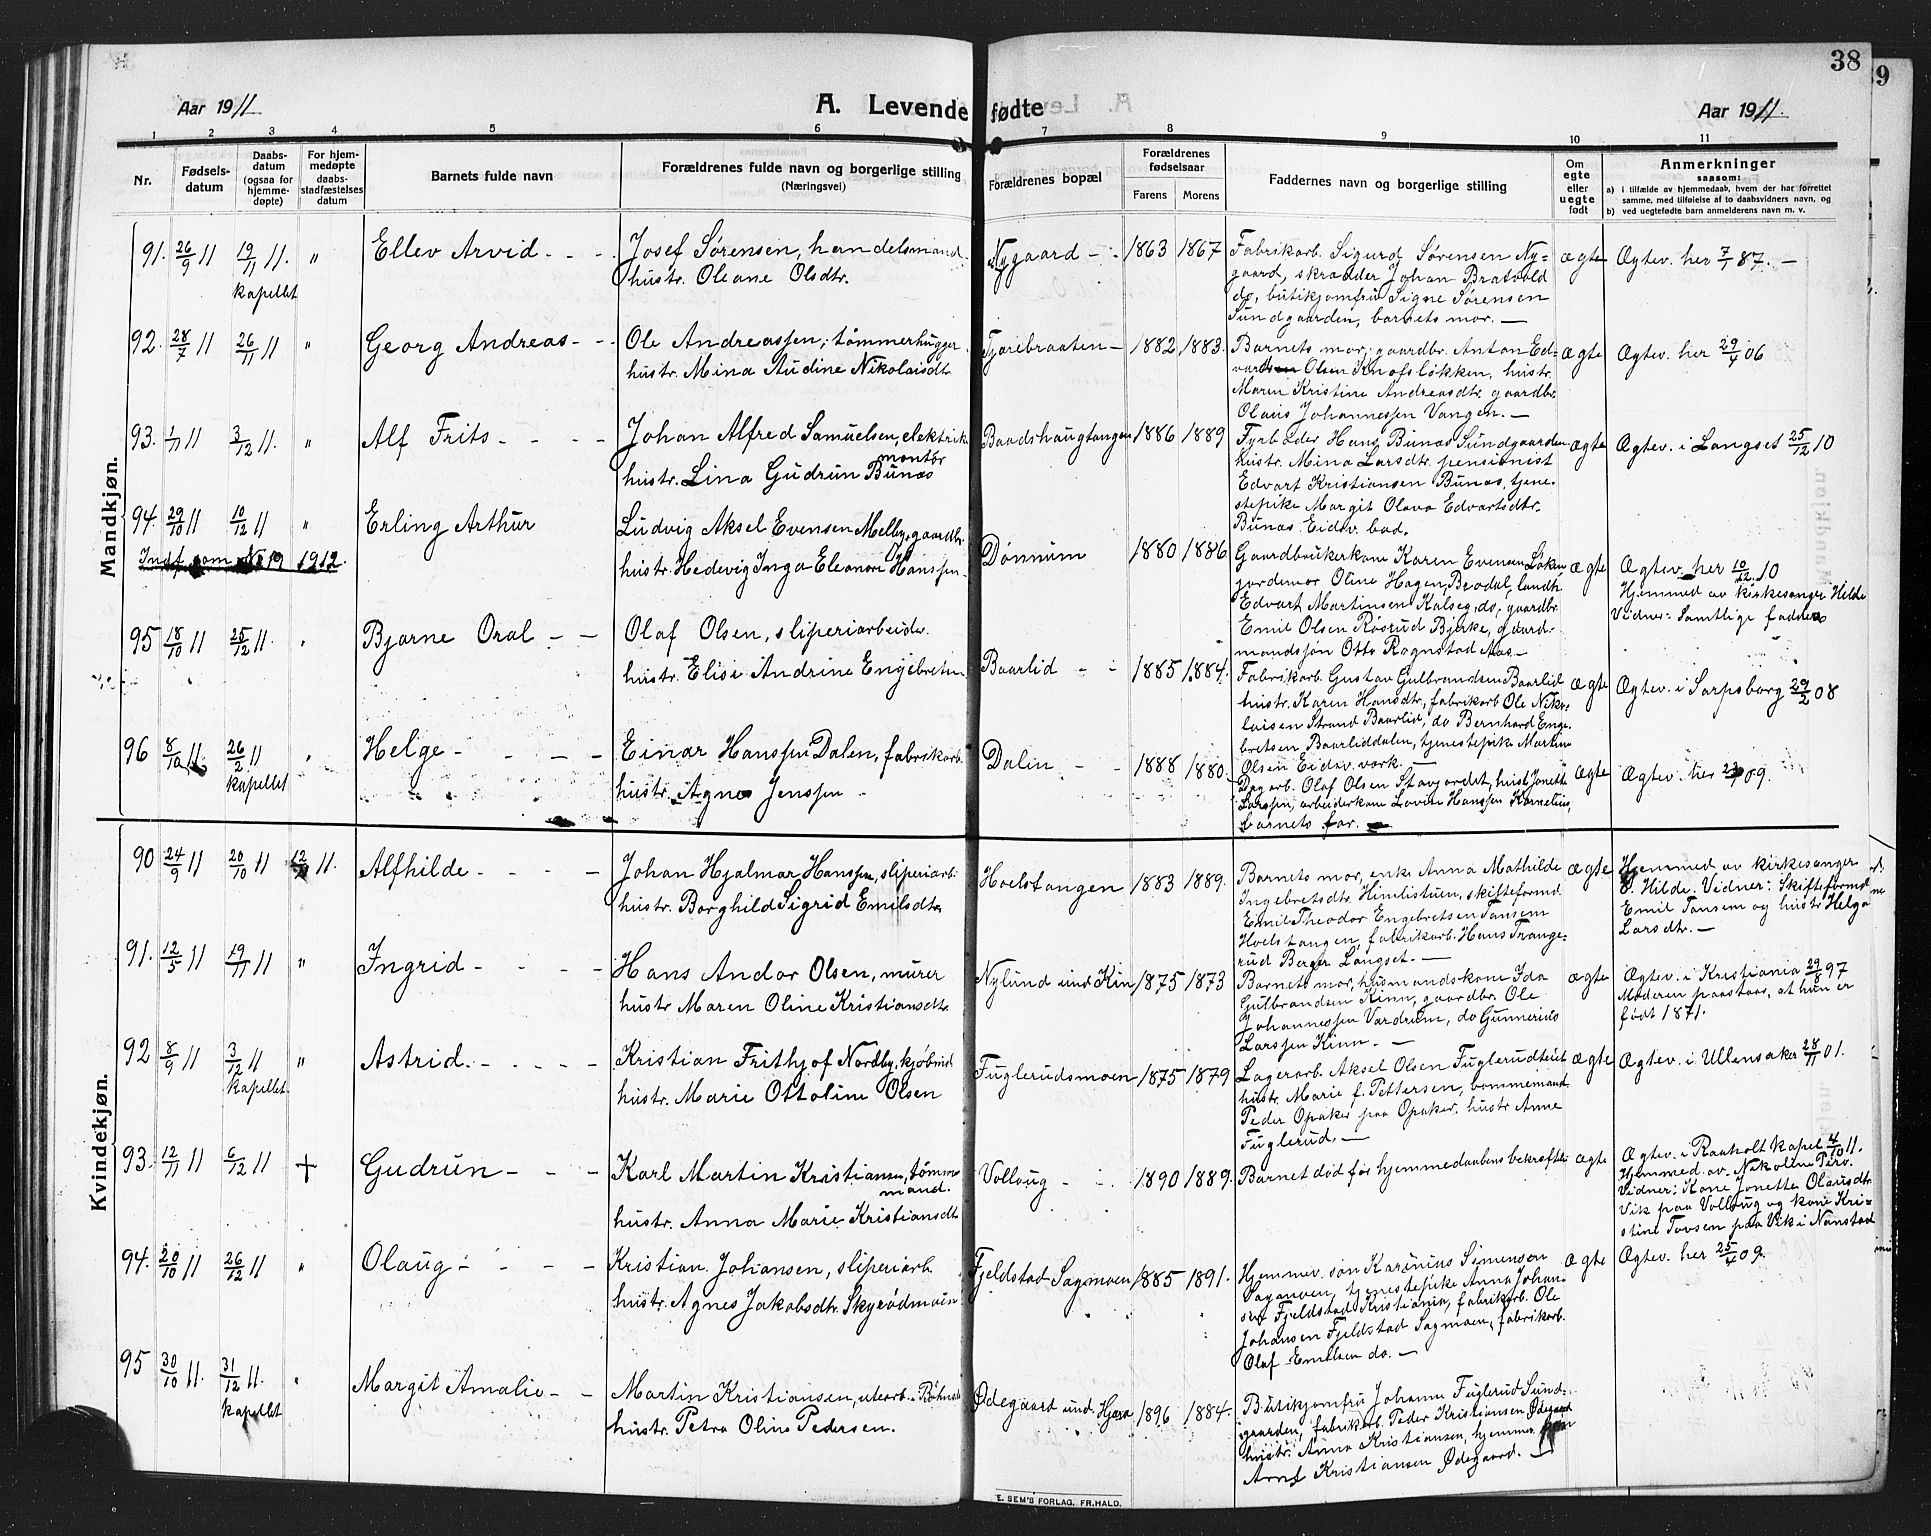 38
9
Aar 1911
A. Levende fødte
Aar 1911.
1 2 3 4 5 6 7 8 9 10 11
Nr.
Fødsels-
datum
Daabs-
datum
(ogsaa for
hjemme-
døpte)
For hjem-
medøpte
daabs-
stadfæstelses
datum
Barnets fulde navn
Forældrenes fulde navn og borgerlige stilling
(Næringsvei)
Forældrenes bopæl
Forældrenes
fødselsaar
Farens Morens
Faddernes navn og borgerlige stilling
Om
egte
eller
uegte
født
Anmerkninger
saasom:
a) i tilfælde av hjemmedaab, hvem der har forrettet
samme, med tilføielse af to daabsvidners navn, og
b) ved uegtefødte barn anmelderens navn m. v.
Mandkjøn.
91. 26/9 11 19/11 11. " Ellev Arvid - - -
kapellet
Josef Sørensen, handelsmand
hustr. Oleane Olsdtr.
Nygaard - - 1863 1867
Fabrikarb. Sigurd Sørensen Ny=
gaard, skrædder Johan Bratvold
do, butikjomfru Signe Sørensen
Sundgaarden, barnets mor. —
ægte Ægtev. her 7/1 87. -
92. 28/7 11 26/11 11 " Georg Andreas - -
Ole Andreassen, tømmerhugger
hustr. Mina Audine Nikolaisdtr.
Tjærebraaten - 1882 1883.
Barnets mor, gaardbr. Anton Ed-
vard Olsen Knofsløkken, hustr.
Maren Kristine Andreasdtr. gaardbr.
Olaus Johannessen Vangen. —
ægte Ægtev. her 29/4 06
93. 1/11 11 3/12 11. " Alf Frits - - - -
Johan Alfred Samuelsen, elektrik.
montør
hustr. Lina Gudrun Bunæs
Baadshaugtangen 1886 1889
Fyrbøder Hans Bunæs Sundgaarden
hustr. Mina Larsdtr. pensionist
Edvart Kristiansen Bunæs, tjene-
stepike Margit Olava Edvartsdtr.
Bunæs Eidsv. bad.
ægte Ægtev. i Langset 25/12 10
94. 29/10 11 10/12 11 " Erling Arthur
Indf. som Nr 19 1912.
Ludvig Aksel Evensen Melby, gaardbr.
hustr. Hedevig Inga Eleonore Hanssen
Dønnum 1880 1886
Gaardbrukerkone Karen Evensen Løken
jordemor Oline Hagen, Beodal, landh.
Edvart Martinsen Kalseg, do, gaardbr.
Emil Olsen Røsrud Bjerke, gaard-
mandssøn Otto Rognstad Mos -
ægte Ægtev. her 10/12 10
Hjemmed. av kirkesanger Hilde
Vidner: Samtlige faddere
95 18/10 11 25/12 11. " Bjarne Oral - -
Olaf Olsen, sliperiarbeider.
hustr. Elise Andrine Engebretsen
Baarlid - - 1885 1884.
Fabrikarb. Gustav Gulbrandsen Baarlid
hustr. Karen Hansdtr, fabrikarb Ole Niko-
laisen Strand Baarlid, do Bernhard Enge-
bretsen Baarliddalen, tjenestepike Martin
Olsen Eidsv. verk. —
ægte Ægtev. i Sarpsborg 29/2 08
96 8/10 11 26/2 11 " Helge - - - -
kapellet
Einar Hanssen Dalen, fabrikarb.
hustr. Agnes Jenssen -
Dalen - - 1888 1880.
Dagarb. Olaf Olsen Stavjordet, hustr Jonette
Larssen, arbeiderkone Lovise Hanssen Kornelius,
barnets far. —
ægte Ægtev. her 09.
Kvindekjøn.
90 24/9 11 20/10 11 12/ 11. Alfhilde - - - -
Johan Hjalmar Hanssen, sliperiarb.
hustr. Borghild Sigrid Emilsdtr
Hoelstangen 1883 1889.
Barnets mor, enke Anna Mathilde
Ingebretsdtr. Himlistuen, skifteformd.
Emil Theodor Engebretsen Tansem
Hoelstangen, fabrikarb. Hans Trange-
rud Berger Langset. —
ægte Hjemmed av kirkesanger
O. Hilde. Vidner: Skifteformd
Emil Tansem og hustr Helga
Larsdtr. —
91. 12/5 11 19/11 11 " Ingrid - - - -
Hans Andor Olsen, murer
hustr Maren Oline Kristiansdtr.
Nylund und Kin 1875 1873
Barnets mor, husmandskone Ida
Gulbrandsen Kinn, gaardbr. Ole
Johannessen Vardrum, do Gunnerius
Larssen Kinn. - —
ægte Ægtev. i Kristiania 29/8 97
Moderen paastaar, at hun er
født 1871.
92 8/9 11 3/12 11 " Astrid. - - - -
kapellet
Kristian Frithjof Nordby, kjøbmd
hustr. Marie Ottoline Olsen
Fuglerudsmoen 1875 1879
Lagerarb. Aksel Olsen Fuglerudteiet
hustr. Marie f. Pettersen, bommemand
Peder Opaker paa Opaker, hustr Anne
Fuglerud. —
ægte Ægtev. i Ullensaker 28/11 01.
93. 12/11 11 6/12 11 + Gudrun - - -
Karl Martin Kristiansen, tømmer
mand.
hustr. Anna Marie Kristiansdtr
Vollaug - - 1890 1889.
Barnet død før hjemmedaabens bekræftelse
ægte Ægtev. i Raaholt kapel 4/10 11.
Hjemmed. av Nikoline Perv.
Vidner: Kone Jonette Olausdtr.
Vik paa Vollaug og kone Kri-
stine Tovsen paa Vik i Nanstad
94. 20/10 11 26/12 11 " Olaug - - - -
Kristian Johansen, sliperiarb.
hustr. Agnes Jakobsdtr. Skyrødmoen
Fjeldstad Sagmoen 1885 1891.
Hjemmev. søn Karenius Simenson
Sagmoen, tjenestepike Anna Johan-
sen Fjeldstad Kristiania, fabrikarb. Ole
Johansen Fjeldstad Sagmoen, fabrikarb.
Olaf Emilsen do. —
ægte Ægtev. her 25/4 09.
95 30/10 11. 31/12 11. " Margit Amalie - -
kapellet
Martin Kristiansen, utearb.
hustr. Petra Oline Pedersen.
Ødegaard und Hjera 1896 1884.
Butikjomfru Johanne Fuglerud Sund-
gaarden, fabrikarb. Peder Kristiansen Ødegaard
hustr. Anna Kristiansen, hjemmev. søn
Arne Kristiansen Ødegaard. —
E. SEM'S FORLAG, FR.HALD.